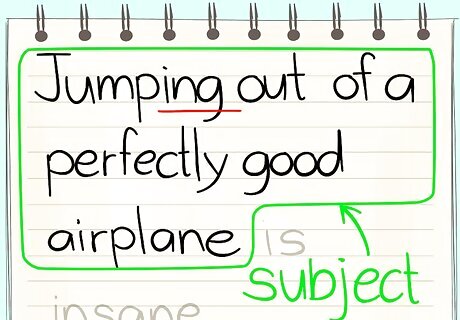 Jumping out of a
perfectly good
airplane is
subject
insane